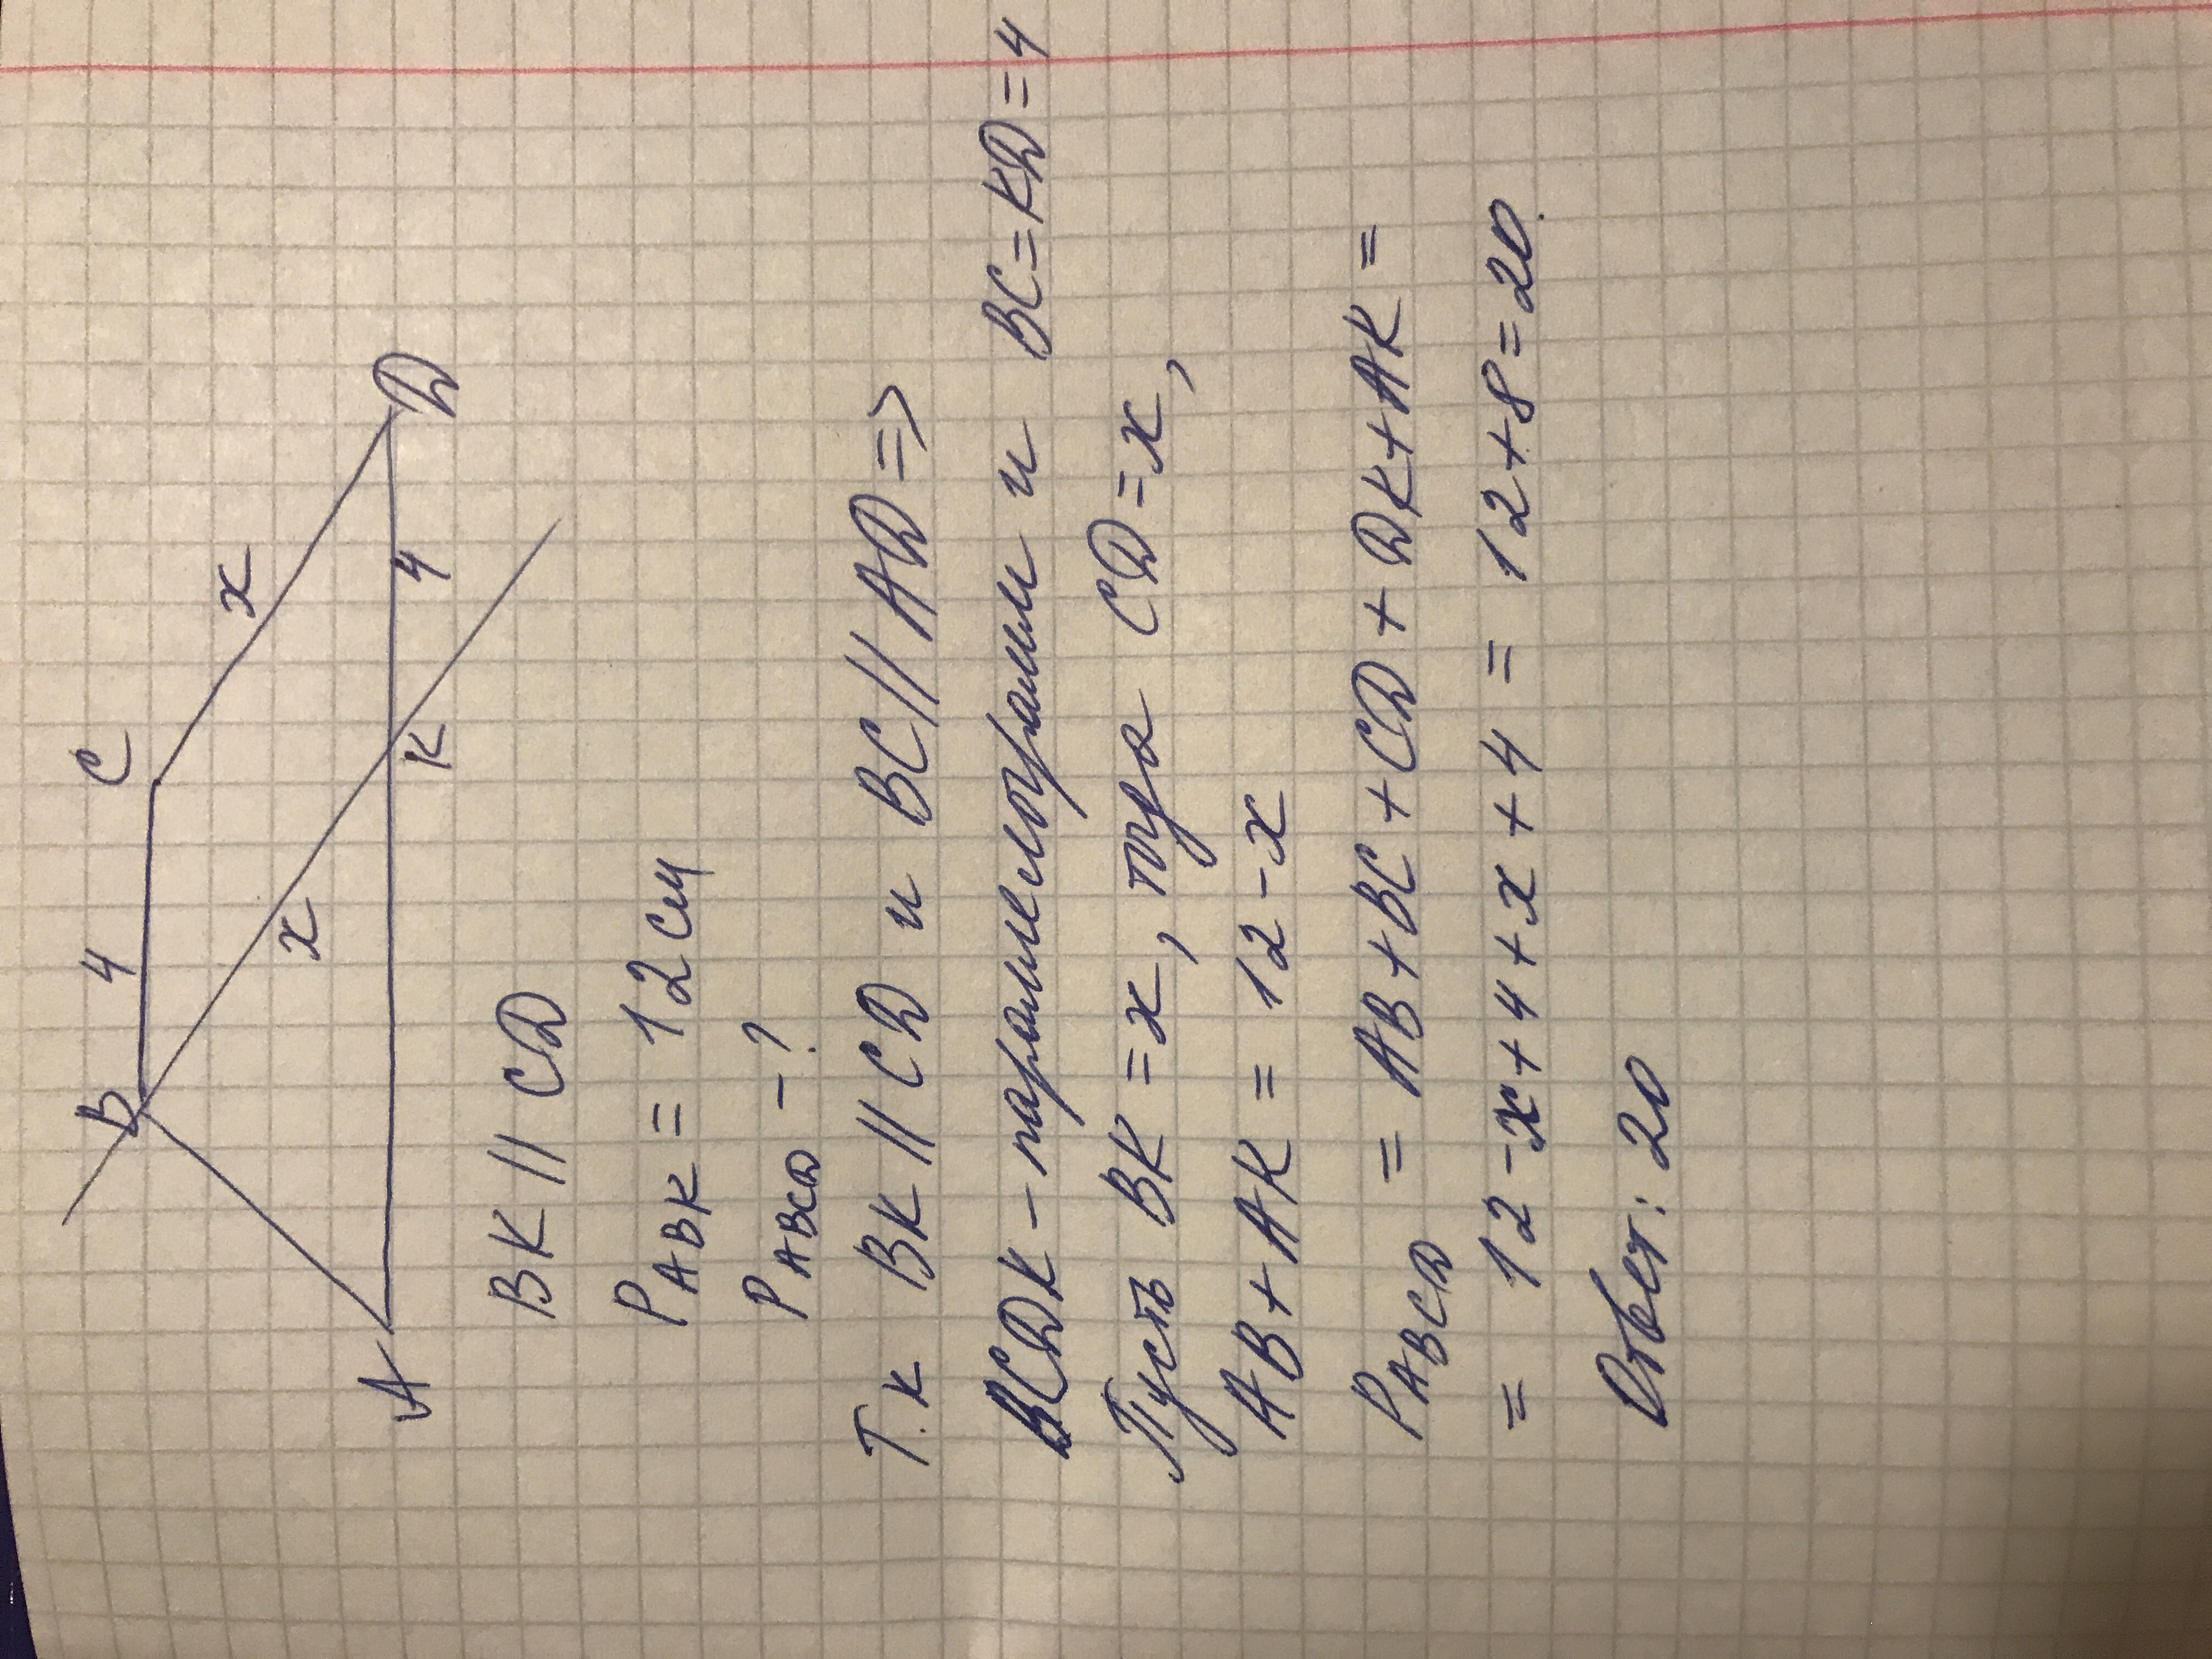 B 4 C
x x
A K 4 D
BK || CD
P ABK = 12 см
P ABCD - ?
Т.к BK || CD и BC || AD =>
BCDK - параллелограмм и BC = KD = 4
Пусть BK = x, тогда CD = x,
AB + AK = 12 - x
P ABCD = AB + BC + CD + DK + AK =
= 12 - x + 4 + x + 4 = 12 + 8 = 20.
Ответ: 20